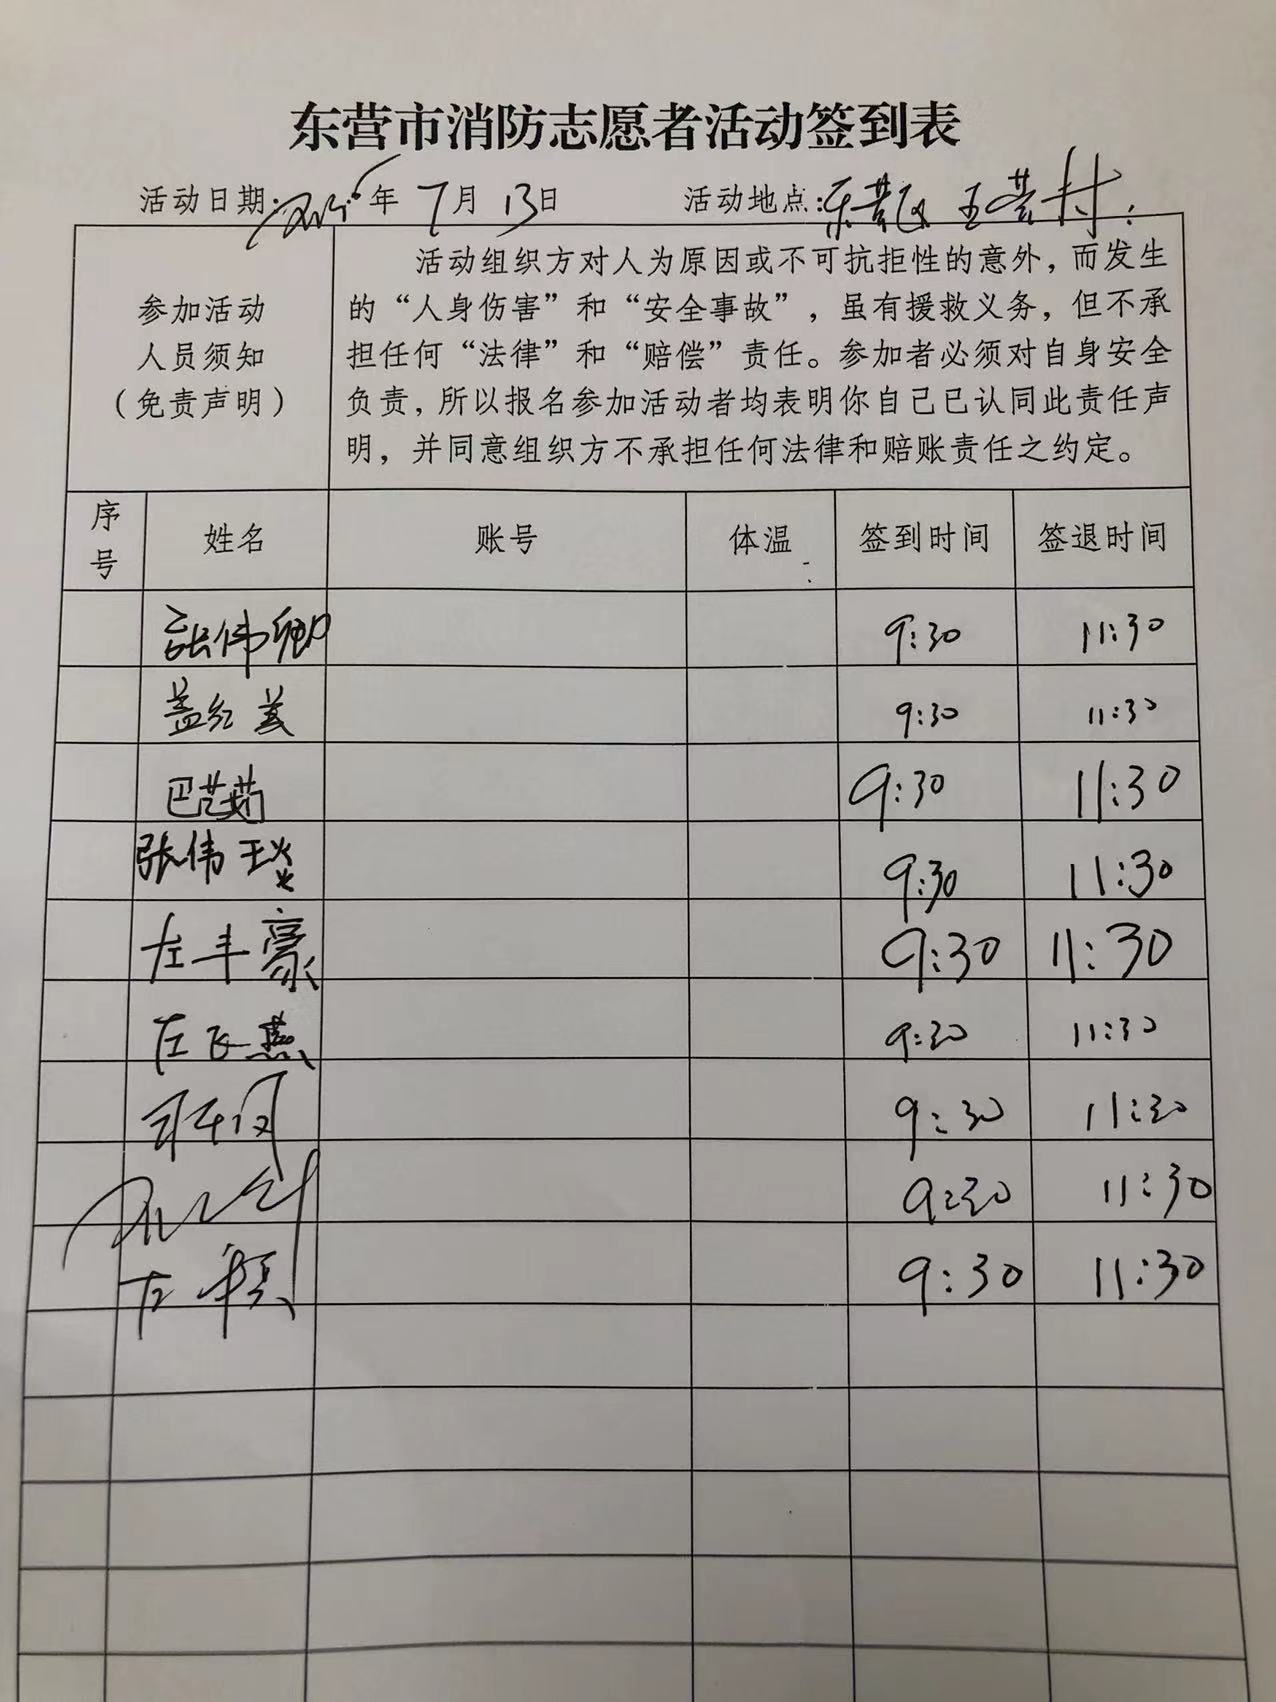 东营市消防志愿者活动签到表
活动日期: 年 7月 13日 活动地点:东营区 王营村
活动组织方对人为原因或不可抗拒性的意外，而发生
的“人身伤害”和“安全事故”，虽有援救义务，但不承
担任何“法律”和“赔偿”责任。参加者必须对自身安全
负责，所以报名参加活动者均表明你自己已认同此责任声
明，并同意组织方不承担任何法律和赔账责任之约定。
参加活动
人员须知
（免责声明）
序号 姓名 账号 体温 签到时间 签退时间
张伟卿 9:30 11:30
盖红美 9:30 11:30
巴艺茹 9:30 11:30
张伟琰 9:30 11:30
左丰豪 9:30 11:30
左飞燕 9:30 11:30
9:30 11:30
9:30 11:30
左 9:30 11:30